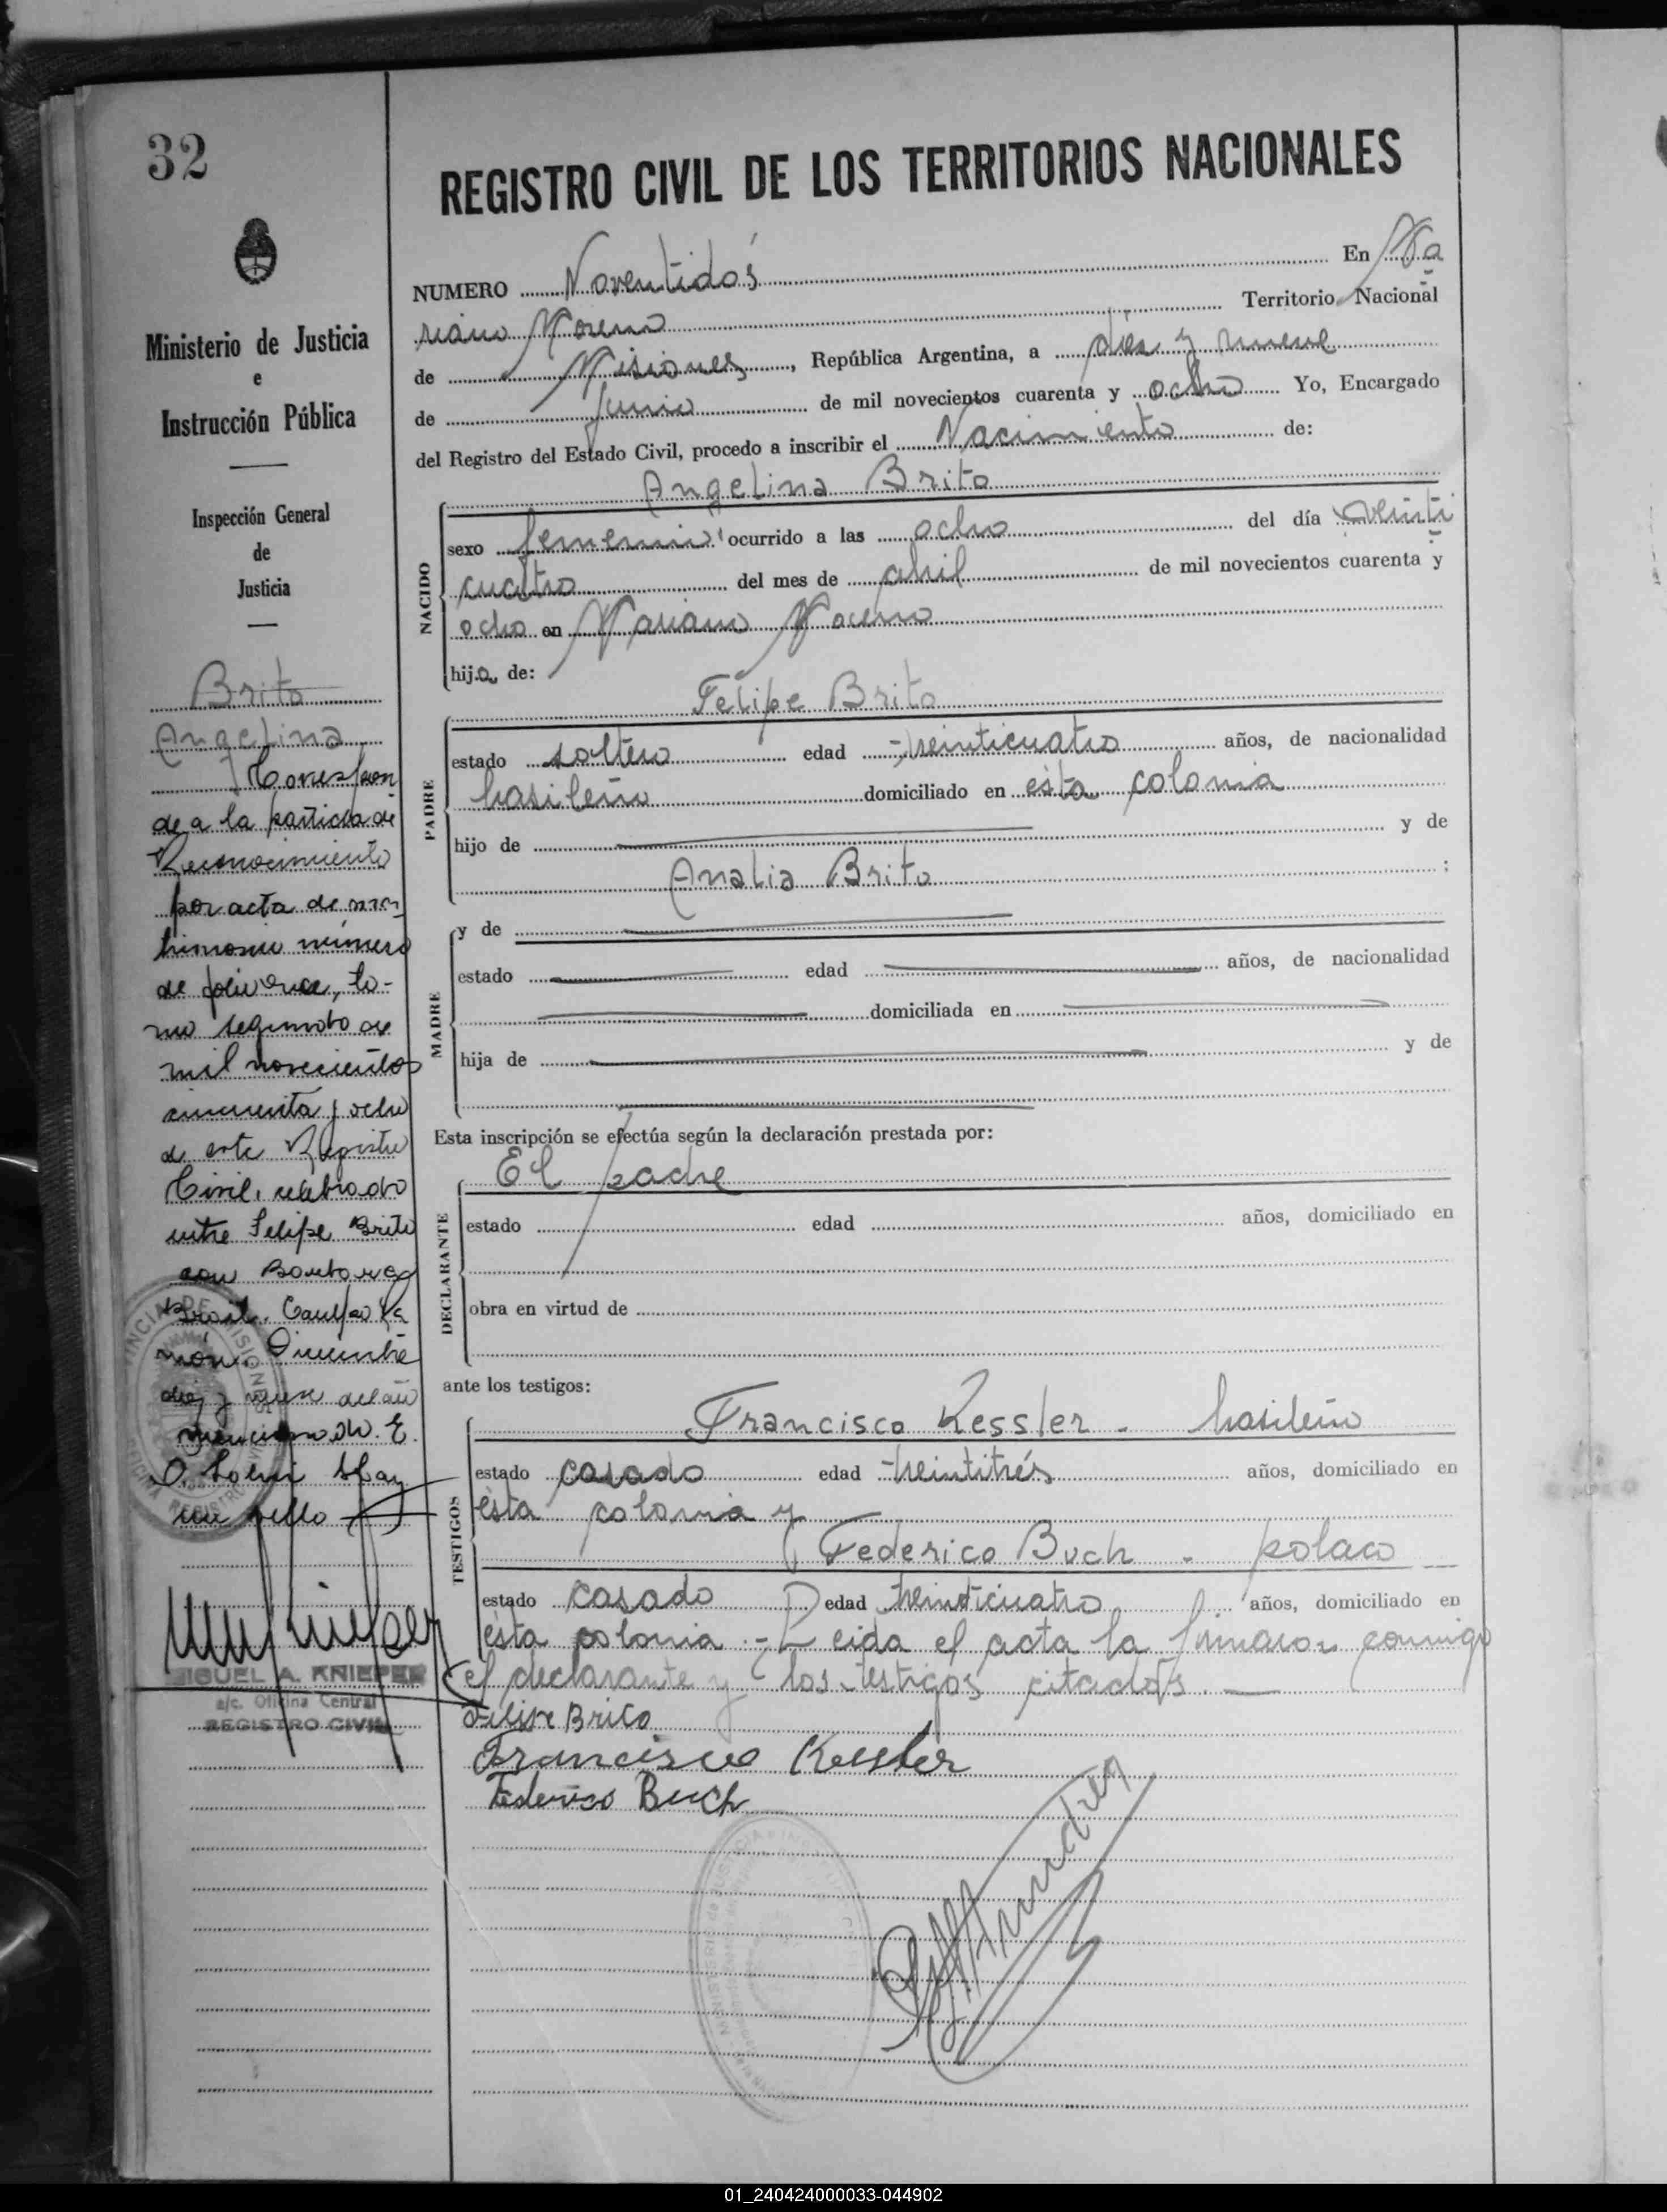 32
Ministerio de Justicia
e
Instrucción Pública
Inspección General
de
Justicia
Brito
Angelina
Correspon
de a la partida de
Reconocimiento
por acta de ma
trimonio número
de, to-
mo segundo de
mil novecientos
cincuenta y ocho
de este Registro
Civil, celebrado
entre Felipe Brito
con
Brasil. Campo Ra
món. Diciembre
diez y nueve del año
mencionado. E.
sello
MIGUEL A. KNIEPER
a/c. Oficina Central
REGISTRO CIVIL
REGISTRO CIVIL DE LOS TERRITORIOS NACIONALES
NUMERO Noventidós En Ma
riano Moreno Territorio Nacional
de Misiones, República Argentina, a diez y nueve
de Junio de mil novecientos cuarenta y ocho Yo, Encargado
del Registro del Estado Civil, procedo a inscribir el Nacimiento de:
Angelina Brito
NACIDO
sexo femenino ocurrido a las ocho del día veinti
cuatro del mes de abril de mil novecientos cuarenta y
ocho en Mariano Moreno
hija de:
Felipe Brito
PADRE
estado soltero edad treinticuatro años, de nacionalidad
brasileño domiciliado en esta colonia
hijo de y de
Analia Brito ;
y de
MADRE
estado edad años, de nacionalidad
domiciliada en
hija de y de
Esta inscripción se efectúa según la declaración prestada por:
El padre
DECLARANTE
estado edad años, domiciliado en
obra en virtud de
ante los testigos:
Francisco Kessler - brasileño
TESTIGOS
estado casado edad treintitrés años, domiciliado en
ésta colonia y
Federico Buch - polaco
estado casado edad treinticuatro años, domiciliado en
ésta colonia.- Leida el acta la firmaron conmigo
el declarante y los testigos citados.
Felipe Brito
Francisco Kessler
Federico Buch
01_240424000033-044902